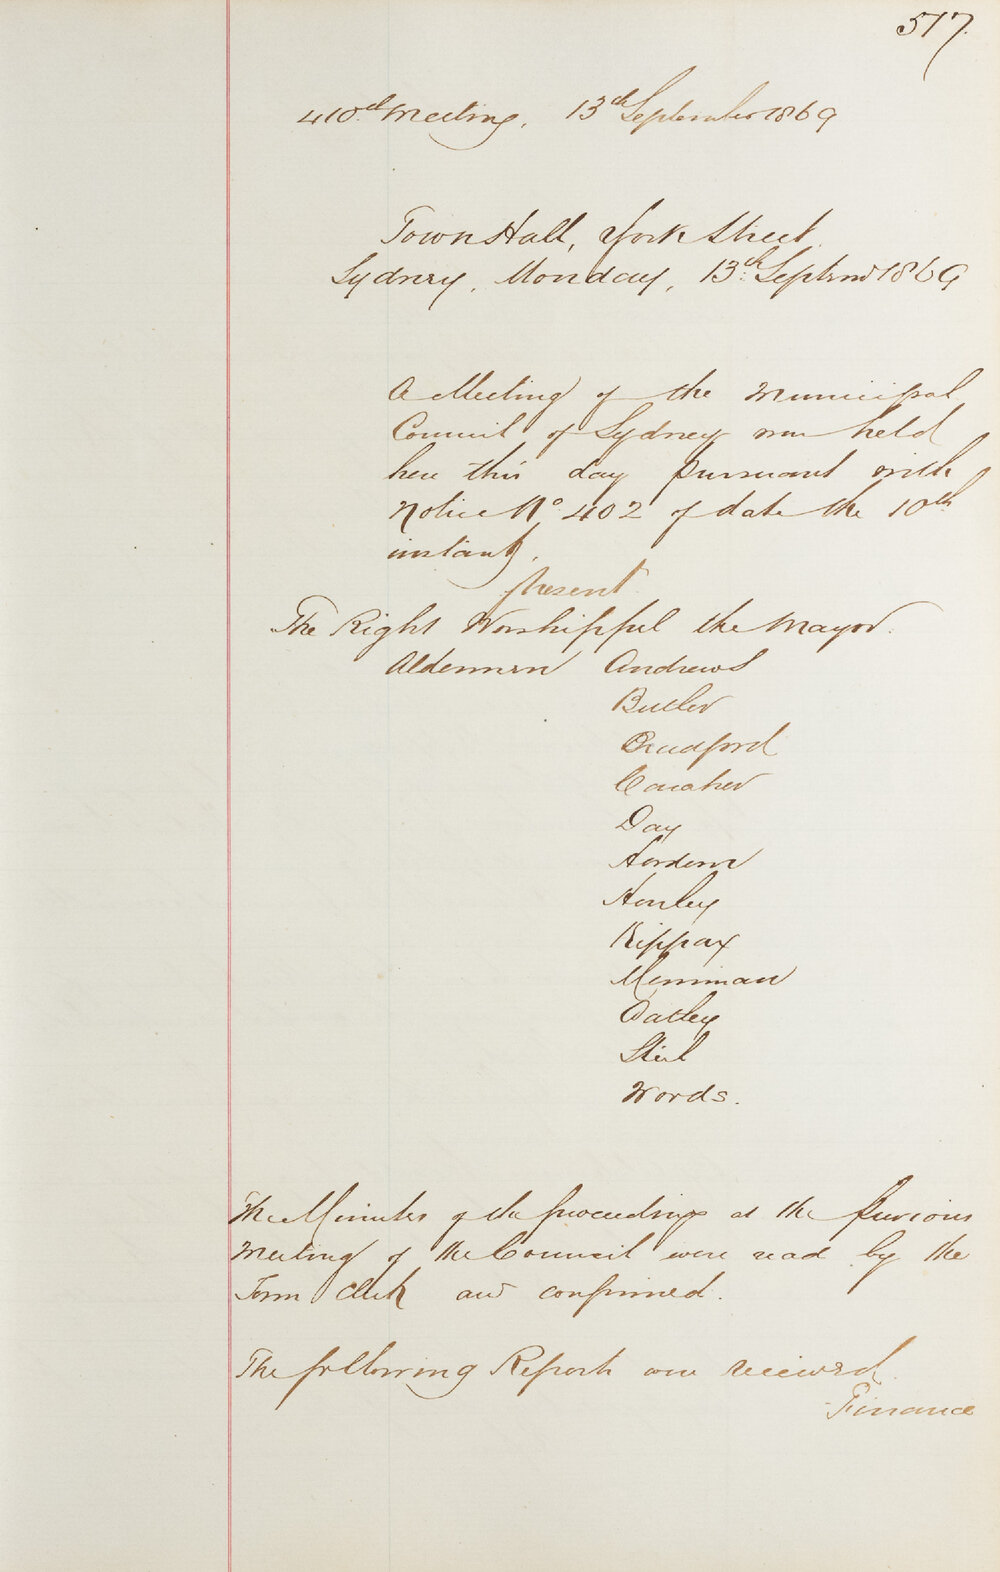 517.
410th Meeting, 13th September 1869
Town Hall, York Street.
Sydney, Monday, 13th Septem 1869
A Meeting of the Municipal
Council of Sydney was held
here this day pursuant with
Notice No 402 of date the 10th
instant.
present.
The Right Worshipful the Mayor.
Aldermen Andrews
Butler
Bradford
Caraher
Day
Hordern
Hurley
Kippax
Merriman
Oatley
Steel
Woods.
The Minutes of the proceedings at the previous
Meeting of the Council were read by the
Town Clerk and confirmed.
The following Reports were received.
Finance